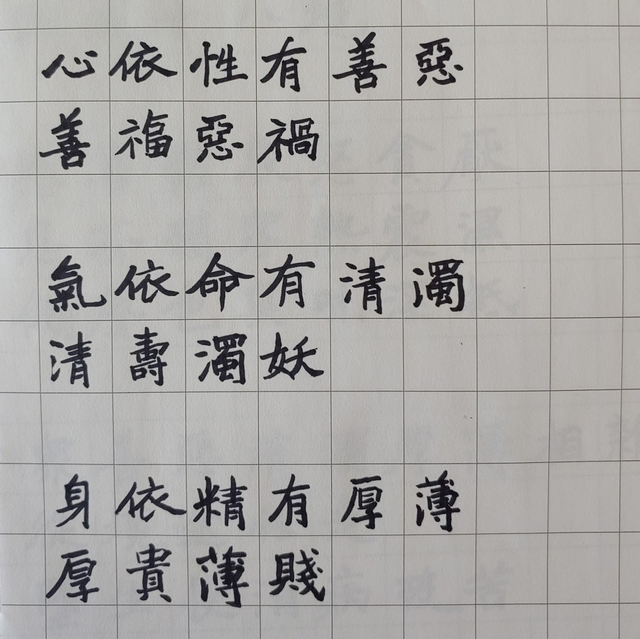 心依性有善惡
善福惡禍
氣依命有清濁
清壽濁妖
身依精有厚薄
厚貴薄賤